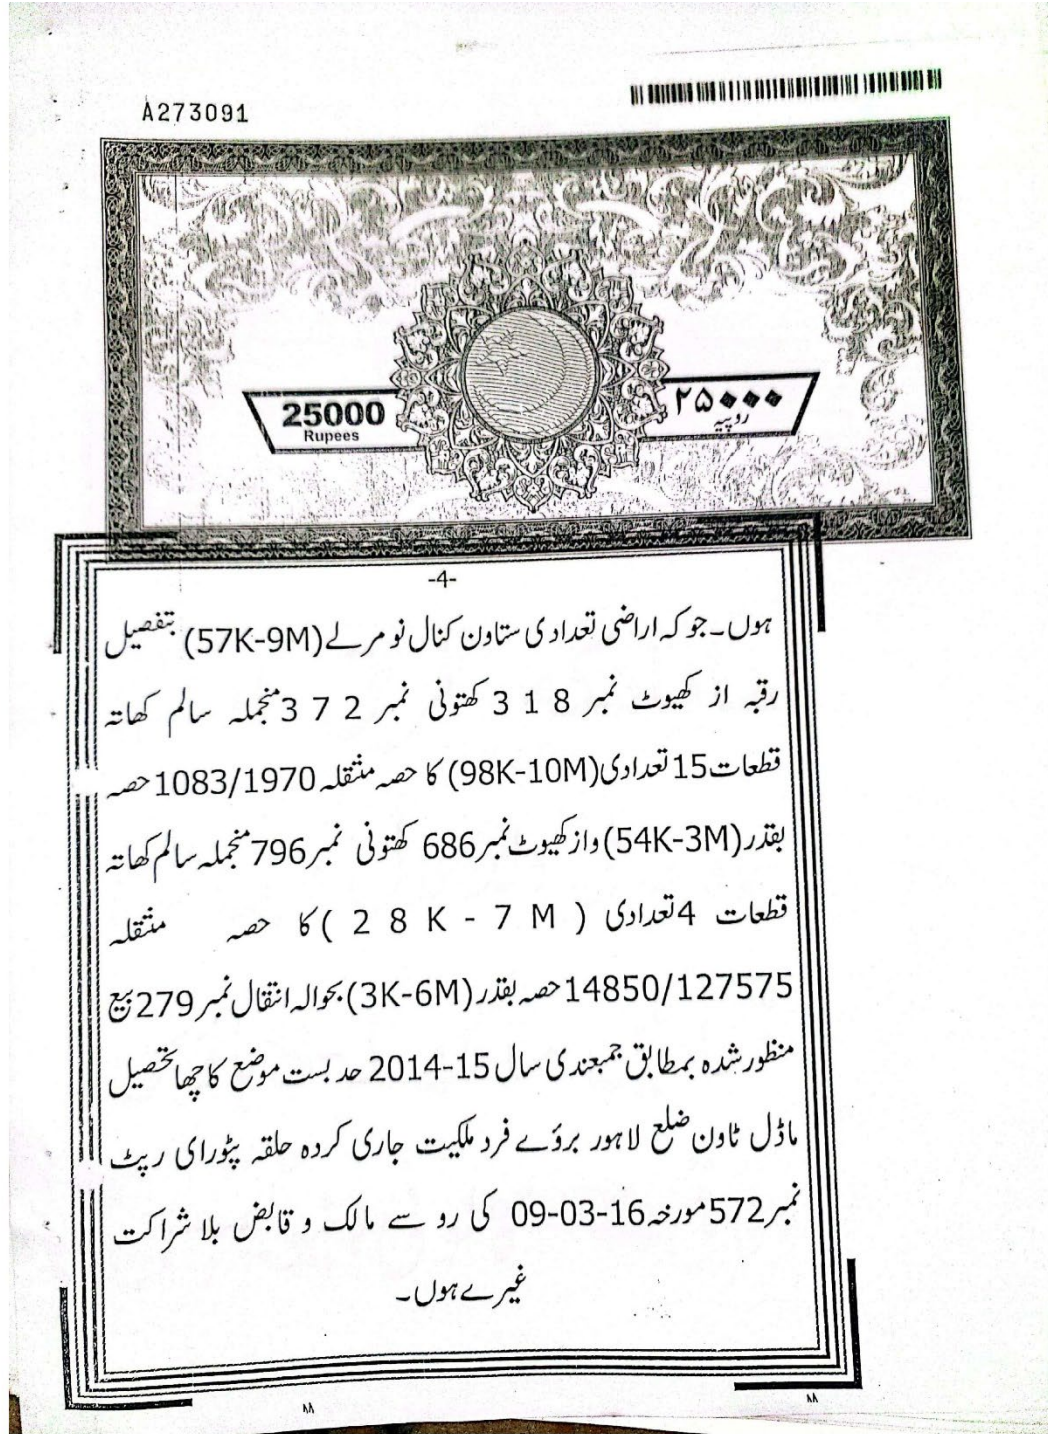 A273091
25000
Rupees
۲۵۰۰۰
روپیہ
-4-
ہوں۔جو کہ اراضی تعدادی ستاون کنال نو مرلے(57K-9M) بتفصیل
رقبہ از کھیوٹ نمبر 318 کھتونی نمبر 372 منجملہ سالم کھاتہ
قطعات15 تعدادی(98K-10M) کا حصہ منتقلہ 1083/1970 حصہ
بقدر(54K-3M) واز کھیوٹ نمبر686 کھتونی نمبر796 منجملہ سالم کھاتہ
قطعات 4 تعدادی (28K-7M) کا حصہ منتقلہ
14850/127575 حصہ بقدر(3K-6M) بحوالہ انتقال نمبر279 بیع
منظور شدہ بمطابق جمبعندی سال 15-2014 حد بست موضع کاچھا تحصیل
ماڈل ٹاون ضلع لاہور بروئے فرد ملکیت جاری کردہ حلقہ پٹورای رپٹ
نمبر572 مورخہ 16-03-09 کی رو سے مالک و قابض بلا شراکت
غیرے ہوں۔